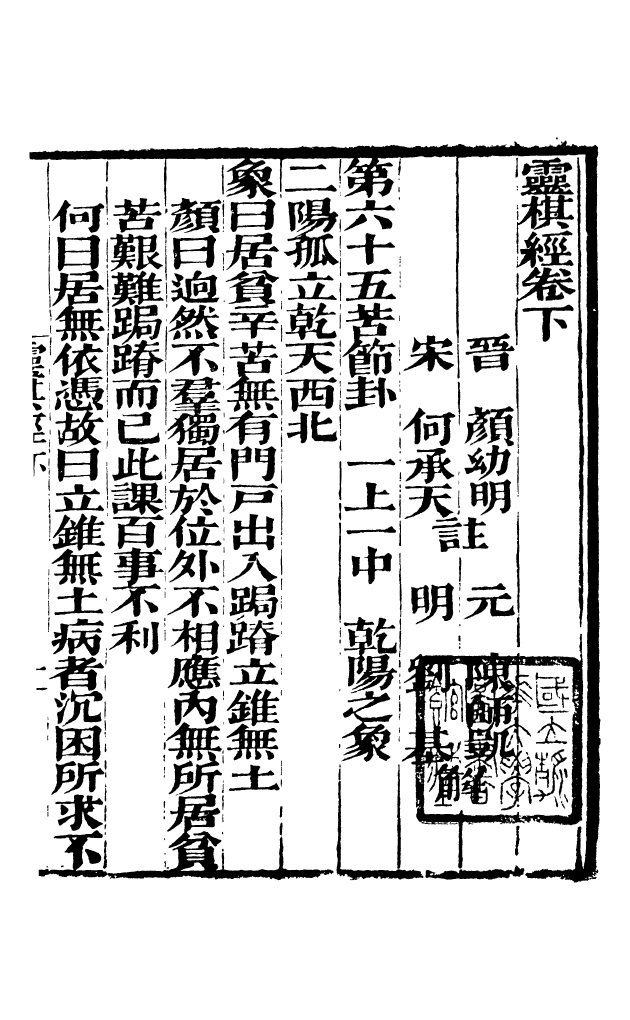 靈棋經卷下
晉 顏幼明 元 陳師凱
宋 何承天 註 明 劉基 解
第六十五苦節卦 一上一中 乾陽之象
二陽孤立乾天西北
象曰居貧辛苦無有門戸出入跼蹐立錐無土
顏曰逈然不羣獨居於位外不相應內無所居貧
苦艱難跼蹐而已此課百事不利
何曰居無依憑故曰立錐無土病者沉困所求不
靈棋經下